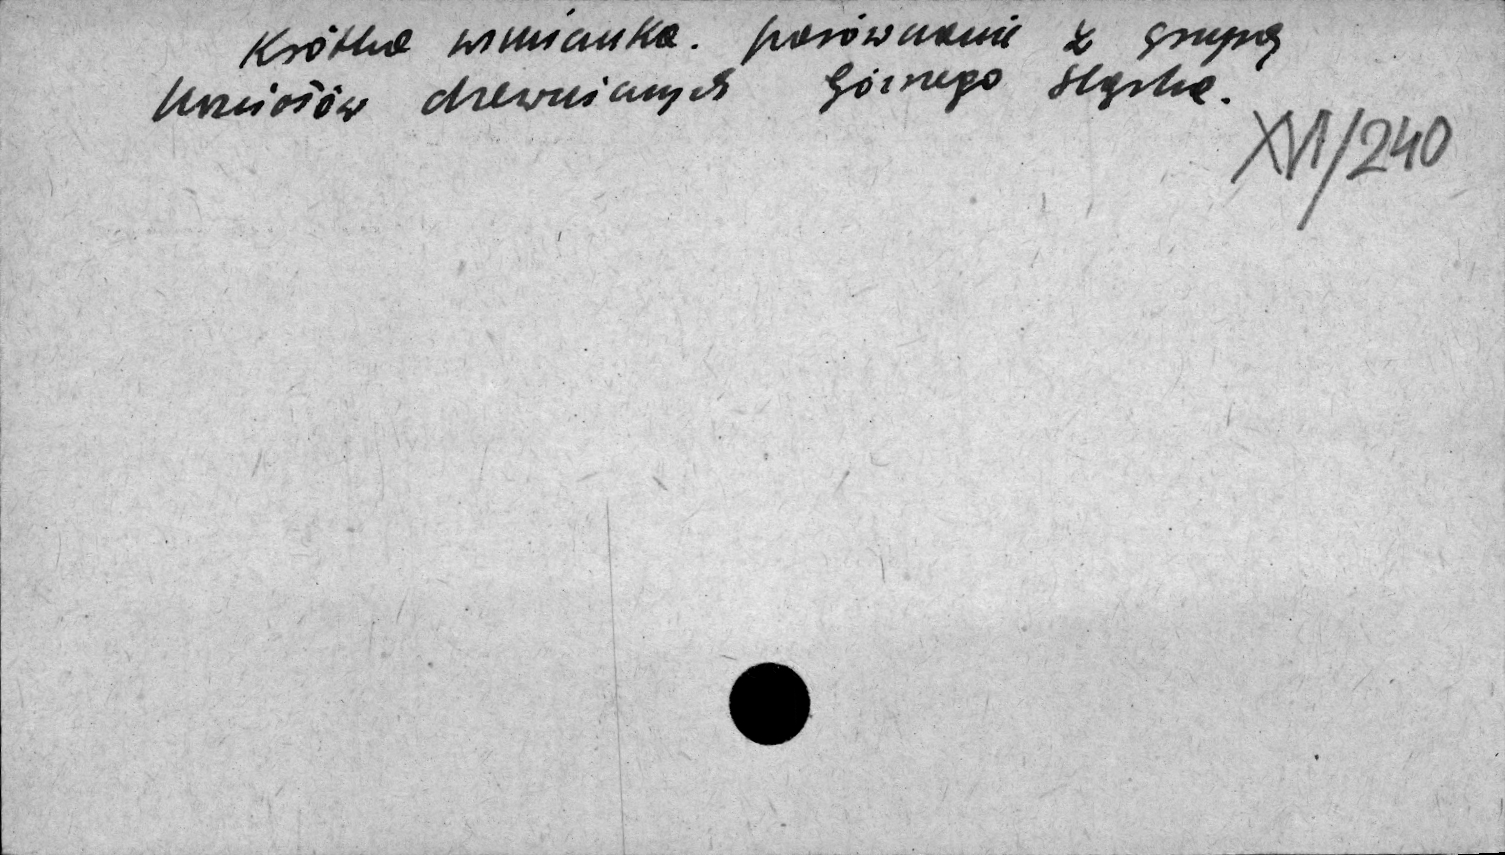 Krótka wzmianka. porównanie z grupą
kościołów drewnianych Górnego Śląska.
XVI/240